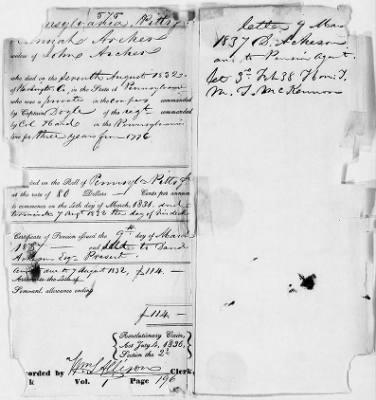 575
Pennsylvania, Pittsg
Hannah Archer
widow of John Archer
who died on the Seventh August 1832
of Washington Co, in the State of Pennsylvania
who was a private in the company commanded
by Captain Doyle of the regt commanded
by Col Hand in the Pennsylvania
line for three years from 1776
on the Roll of Pennsylva Pittsg
at the rate of 80 Dollars Cents per annum
to commence on the 4th day of March, 1831. and
terminate 7 Augt 1832 the day of his death
Certificate of Pension issued the 9th day of March
1837 and sent to David
Acheson Esq Present.
due to 7 August 1832, $114. -
Semiannl. allowance ending
$114. -
Revolutionary Claim,
Act July 4, 1836,
Section the 2d
Recorded by Wm L Allison Clerk,
k Vol. 1 Page 196
letter 9 Mar
1837 D. Acheson
and to Pension Agent.
let 3d Feb 38 From T.
M. T. McKennon